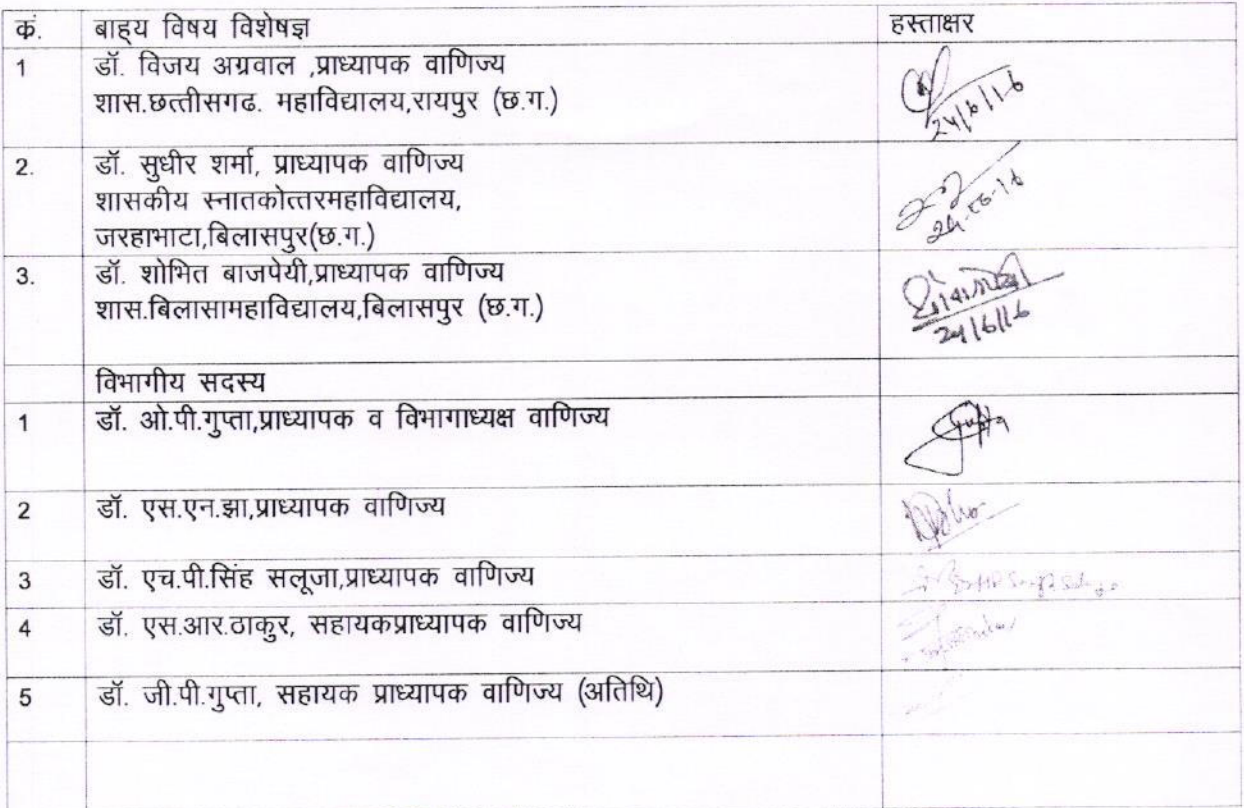 क्रं. बाह्य विषय विशेषज्ञ हस्ताक्षर
1 डॉ. विजय अग्रवाल ,प्राध्यापक वाणिज्य
शास.छत्तीसगढ. महाविद्यालय,रायपुर (छ.ग.)
24/6/16
2. डॉ. सुधीर शर्मा, प्राध्यापक वाणिज्य
शासकीय स्नातकोत्तरमहाविद्यालय,
जरहाभाटा,बिलासपुर(छ.ग.)
3. डॉ. शोभित बाजपेयी,प्राध्यापक वाणिज्य
शास.बिलासामहाविद्यालय,बिलासपुर (छ.ग.)
24/6/16
विभागीय सदस्य
1 डॉ. ओ.पी.गुप्ता,प्राध्यापक व विभागाध्यक्ष वाणिज्य
Gupta
2 डॉ. एस.एन.झा,प्राध्यापक वाणिज्य
3 डॉ. एच.पी.सिंह सलूजा,प्राध्यापक वाणिज्य
4 डॉ. एस.आर.ठाकुर, सहायकप्राध्यापक वाणिज्य
5 डॉ. जी.पी.गुप्ता, सहायक प्राध्यापक वाणिज्य (अतिथि)